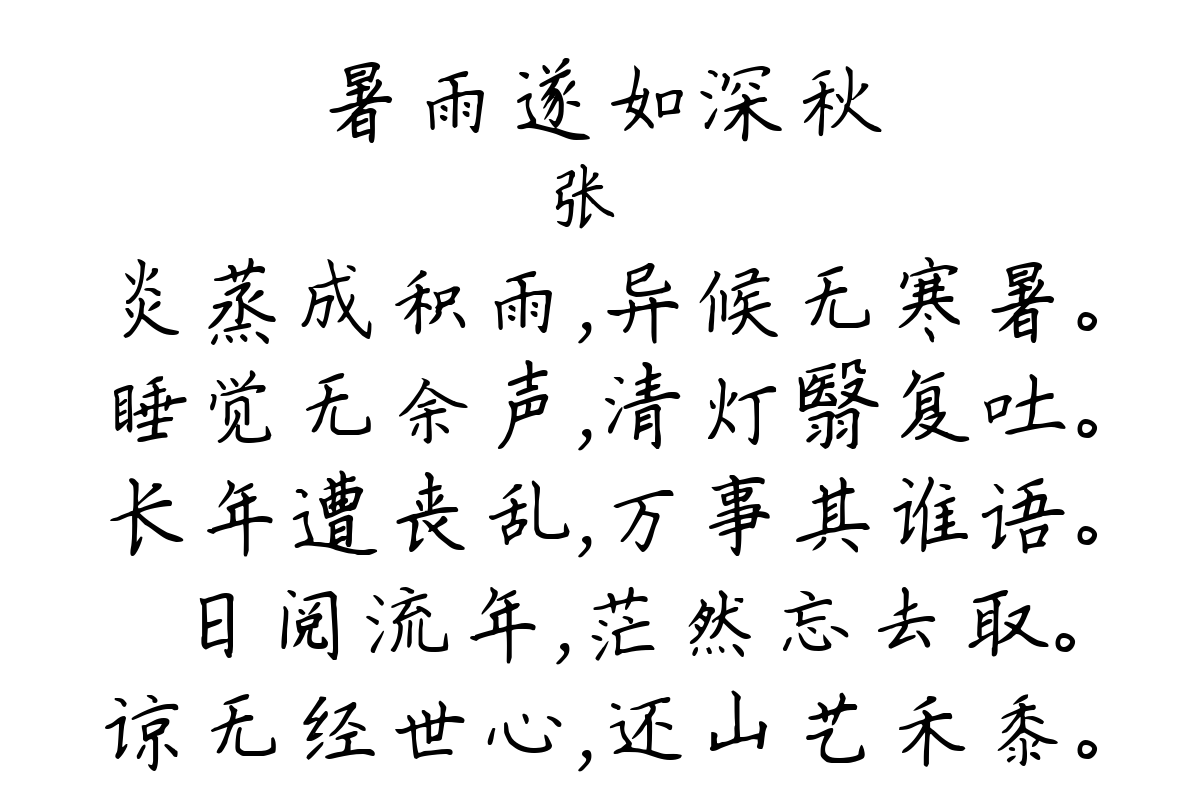 暑雨遂如深秋
张
炎蒸成积雨,异候无寒暑。
睡觉无余声,清灯翳复吐。
长年遭丧乱,万事其谁语。
日阅流年,茫然忘去取。
谅无经世心,还山艺禾黍。